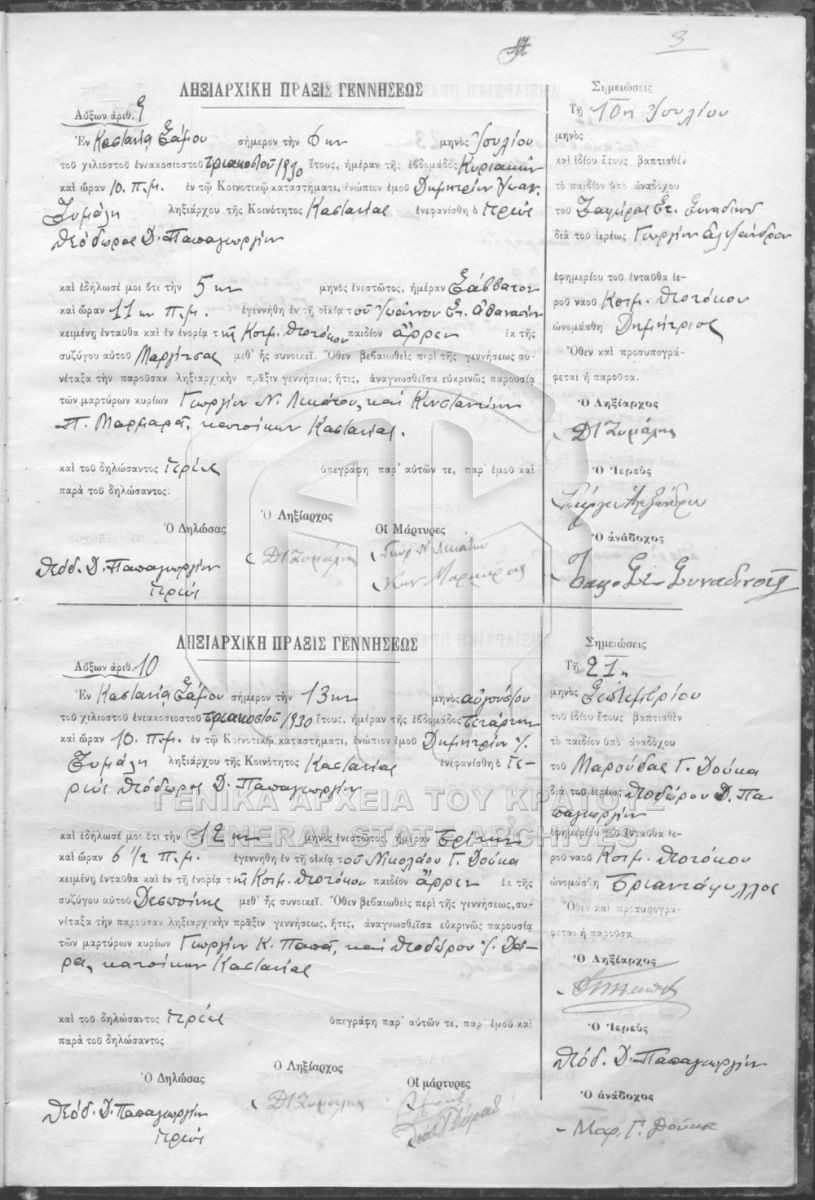 3
ΛΗΞΙΑΡΧΙΚΗ ΠΡΑΞΙΣ ΓΕΝΝΗΣΕΩΣ
Αὔξων ἀριθ. 9
Ἐν Καστανέᾳ Σάμου σήμερον τὴν 6ην μηνὸς Ἰουλίου
τοῦ χιλιοστοῦ ἐνεακοσιοστοῦ τριακοστοῦ 1930 ἔτους, ἡμέραν τῆς ἑβδομάδος Κυριακὴν
καὶ ὥραν 10. π.μ. ἐν τῷ Κοινοτικῷ καταστήματι, ἐνώπιον ἐμοῦ Δημητρίου Ἰωαν.
Ζυμάλη ληξιάρχου τῆς Κοινότητος Καστανέας ἐνεφανίσθη ὁ ἱερεὺς
Θεόδωρος Δ. Παπαγεωργίου
καὶ ἐδήλωσέ μοι ὅτι τὴν 5ην μηνὸς ἐνεστῶτος, ἡμέραν Σάββατον
καὶ ὥραν 11ην π.μ. ἐγεννήθη ἐν τῇ οἰκίᾳ τοῦ Ἰωάννου Στ. Ἀθανασίου
κειμένῃ ἐνταῦθα καὶ ἐν ἐνορίᾳ τῆς Κοιμ. Θεοτόκου παιδίον ἄρρεν ἐκ τῆς
συζύγου αὐτοῦ Μαργίτσας μεθ' ἧς συνοικεῖ. Ὅθεν βεβαιωθεὶς περὶ τῆς γεννήσεως συ-
νέταξα τὴν παροῦσαν ληξιαρχικὴν πρᾶξιν γεννήσεως ἥτις, ἀναγνωσθεῖσα εὐκρινῶς παρουσίᾳ
τῶν μαρτύρων κυρίων Γεωργίου Ν. Λεκάτου, καὶ Κωνσταντίνου
Π. Μαρμαρᾶ, κατοίκων Καστανέας.
καὶ τοῦ δηλώσαντος ἱερέως ὑπεγράφη παρ' αὐτῶν τε, παρ' ἐμοῦ καὶ
παρὰ τοῦ δηλώσαντος.
Ὁ Δηλώσας Ὁ Ληξίαρχος Οἱ Μάρτυρες
Θεόδ. Δ. Παπαγεωργίου ΔΙΖυμάλης Γεώρ Ν Λεκάτου
ἱερεὺς Κων Μαρμαρας
Σημειώσεις
Τῇ 10ῃ Ἰουλίου
μηνὸς
καὶ ἰδίου ἔτους βαπτισθὲν
τὸ παιδίον ὑπὸ ἀναδόχου
τοῦ Στ. Συναδινοῦ
διὰ τοῦ ἱερέως Γεωργίου Ἀλεξάνδρου
ἐφημερίου τοῦ ἐνταῦθα ἱε-
ροῦ ναοῦ Κοιμ. Θεοτόκου
ὠνομάσθη Δημήτριος
Ὅθεν καὶ προσυπογρά-
φεται ἡ παροῦσα.
Ὁ Ληξίαρχος
ΔΙΖυμάλης
Ὁ Ἱερεὺς
Ὁ ἀνάδοχος
Στ. Συναδινός
ΛΗΞΙΑΡΧΙΚΗ ΠΡΑΞΙΣ ΓΕΝΝΗΣΕΩΣ
Αὔξων ἀριθ. 10
Ἐν Καστανέᾳ Σάμου σήμερον τὴν 13ην μηνὸς αὐγούστου
τοῦ χιλιοστοῦ ἐνεακοσιοστοῦ τριακοστοῦ 1930 ἔτους, ἡμέραν τῆς ἑβδομάδος τετάρτην
καὶ ὥραν 10. π.μ. ἐν τῷ Κοινοτικῷ καταστήματι, ἐνώπιον ἐμοῦ Δημητρίου Ἰ.
Ζυμάλη ληξιάρχου τῆς Κοινότητος Καστανέας ἐνεφανίσθη ὁ ἱε-
ρεὺς Θεόδωρος Δ. Παπαγεωργίου
ΓΕΝΙΚΑ ΑΡΧΕΙΑ ΤΟΥ ΚΡΑΤΟΥΣ
GENERAL STATE ARCHIVES
καὶ ἐδήλωσέ μοι ὅτι τὴν 12ην μηνὸς ἐνεστῶτος, ἡμέραν Τρίτην
καὶ ὥραν 6 1/2 π.μ. ἐγεννήθη ἐν τῇ οἰκίᾳ τοῦ Νικολάου Γ. Δούκα
κειμένῃ ἐνταῦθα καὶ ἐν τῇ ἐνορίᾳ τῆς Κοιμ. Θεοτόκου παιδίον ἄρρεν ἐκ τῆς
συζύγου αὐτοῦ Δεσποίνης μεθ' ἧς συνοικεῖ. Ὅθεν βεβαιωθεὶς περὶ τῆς γεννήσεως, συ-
νέταξα τὴν παροῦσαν ληξιαρχικὴν πρᾶξιν γεννήσεως, ἥτις, ἀναγνωσθεῖσα εὐκρινῶς παρουσίᾳ
τῶν μαρτύρων κυρίων Γεωργίου Κ. Παπᾶ, καὶ Θεοδώρου Ἰ.
κατοίκων Καστανέας
καὶ τοῦ δηλώσαντος ἱερέως ὑπεγράφη παρ' αὐτῶν τε, παρ' ἐμοῦ καὶ
παρὰ τοῦ δηλώσαντος
Ὁ Δηλώσας Ὁ Ληξίαρχος Οἱ μάρτυρες
Θεόδ. Δ. Παπαγεωργίου ΔΙΖυμάλης
ἱερεὺς
Σημειώσεις
Τῇ 21ῃ
μηνὸς Σεπτεμβρίου
τοῦ ἰδίου ἔτους βαπτισθὲν
τὸ παιδίον ὑπὸ ἀναδόχου
τοῦ Μαρούδας Γ. Δούκα
διὰ τοῦ ἱερέως Θεοδώρου Δ. Πα
παγεωργίου
ἐφημερίου τοῦ ἐνταῦθα ἱε-
ροῦ ναοῦ Κοιμ. Θεοτόκου
ὠνομάσθη Τριαντάφυλλος
Ὅθεν καὶ προσυπογρά-
φεται ἡ παροῦσα
Ὁ Ληξίαρχος
Ὁ Ἱερεὺς
Θεόδ. Δ. Παπαγεωργίου
Ὁ ἀνάδοχος
Μαρ. Γ. Δούκα